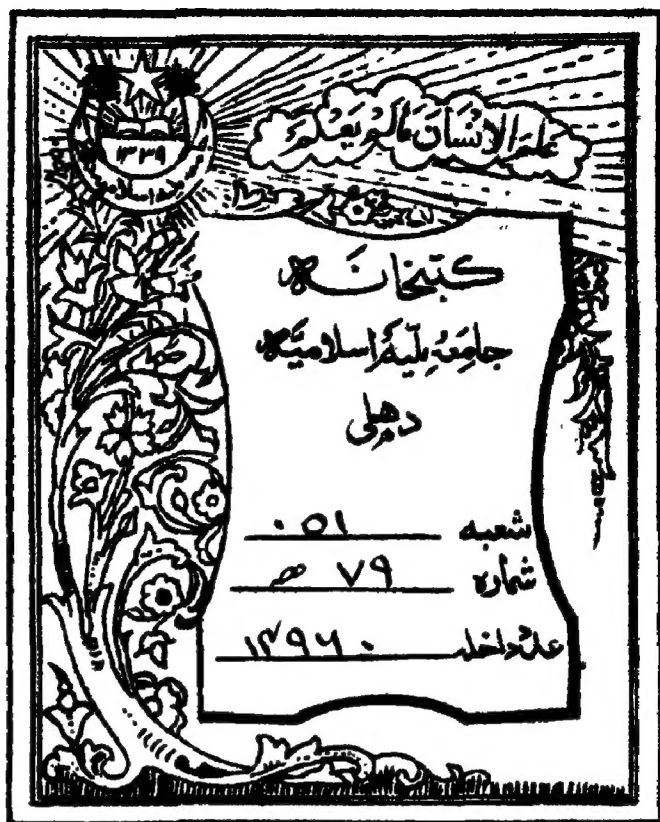 علم الانسان مالم یعلم
۱۳۳۹
کتبخانہ
جامعہ ملیہ اسلامیہ
دہلی
شعبہ ۰۵۱
شمارہ ۷۹
عدد داخلہ ۱۳۹۶۰